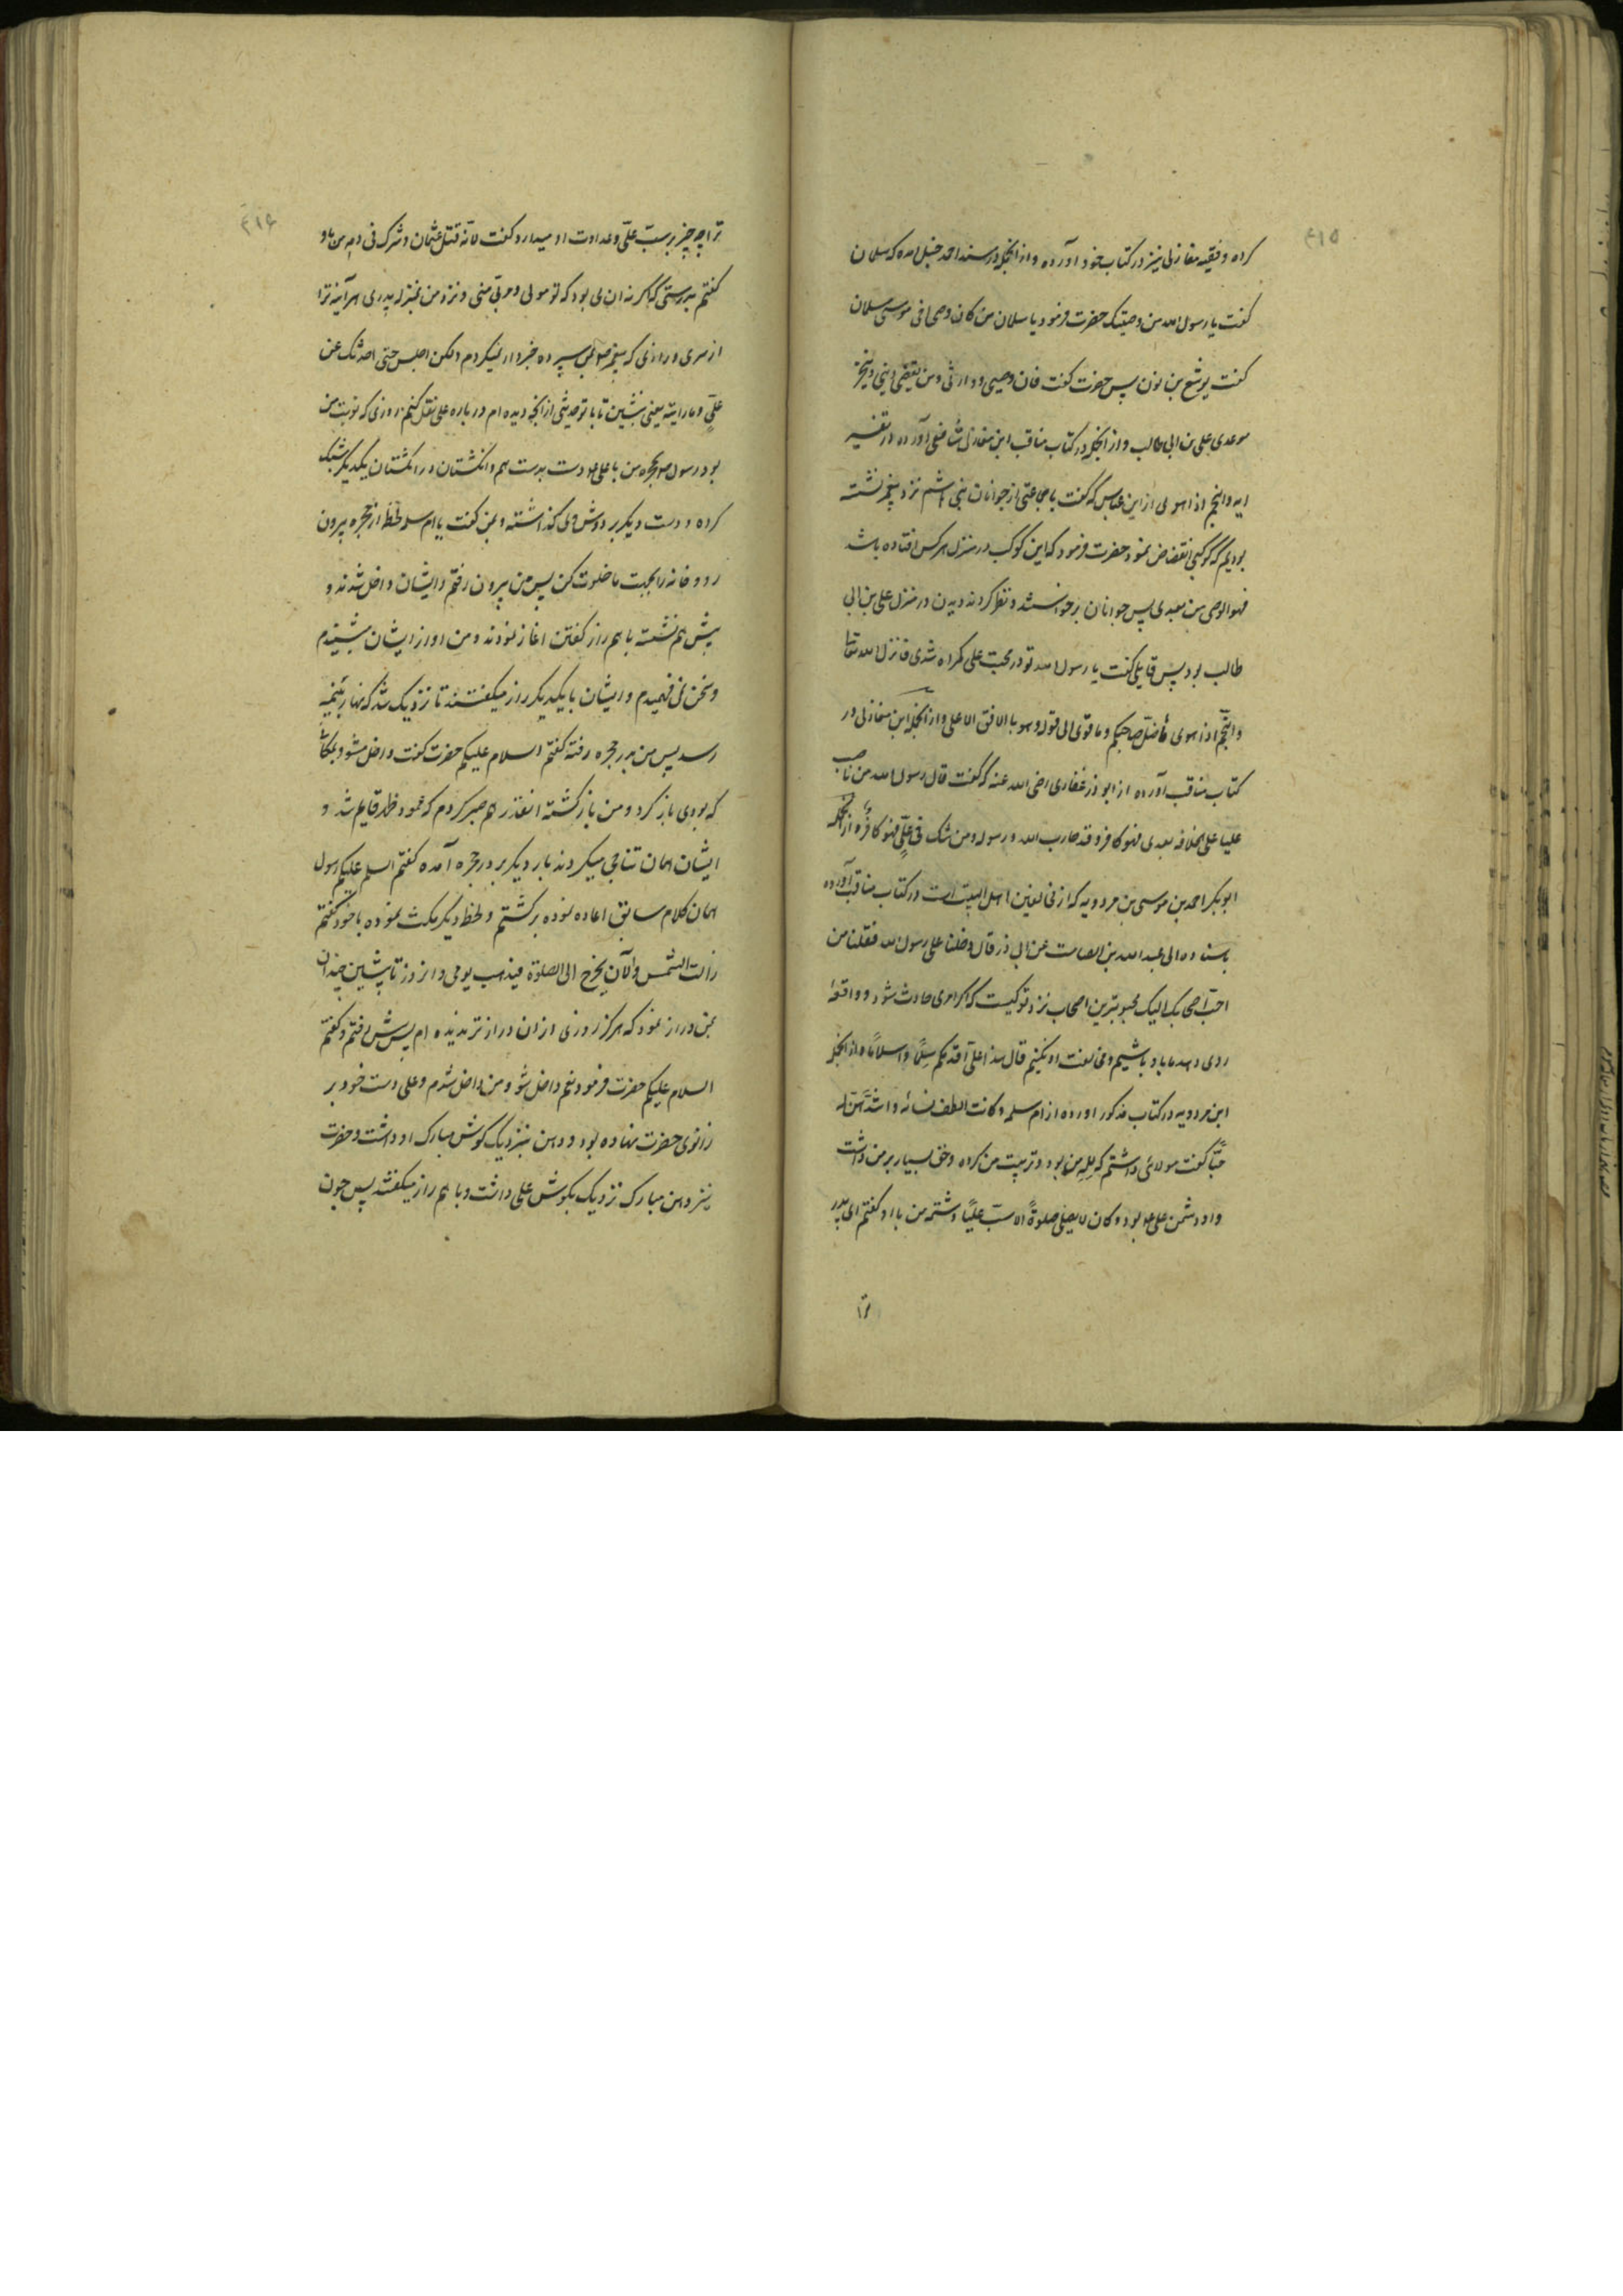 ۴۱۵
کرده و فقیه مغازلی نیز در کتاب خود آورده و از آنجمله در مسند احمد حنبل آمده که سلمان
گفت یا رسول الله من وصیک حضرت فرمود یا سلمان من کان وصی اخی موسی سلمان
گفت یوشع بن نون پس حضرت گفت فان وصیی و وارثی و من یقضی دینی و ینجز
موعدی علی بن ابی طالب و از آنجمله در کتاب مناقب ابن مغازلی شافعی آورده در تفسیر
ایه والنجم اذا هوی از ابن عباس که گفت با جماعتی از جوانان بنی هاشم نزد پیغمبر نشسته
بودیم که کوکبی انقضاض نمود حضرت فرمود که این کوکب در منزل هر کس افتاده باشد
فهو الوصی من بعدی پس جوانان برخواستند و نظر کردند دیدن در منزل علی بن ابی
طالب بود پس قایلی گفت یا رسول الله تو در محبت علی گمراه شدی فانزل الله تعا
والنجم اذا هوی ما ضل صاحبکم و ما غوی الی قوله و هو بالافق الاعلی و از آنجمله ابن مغازلی در
کتاب مناقب آورده از ابو ذر غفاری رضی الله عنه که گفت قال رسول الله من ناصب
علیا علی الخلافه بعدی فهو کافر و قد حارب الله و رسوله و من شک فی علی فهو کافر و از آنجمله
ابو بکر احمد بن موسی بن مردویه که از مخالفین اهل البیت است در کتاب مناقب آورده
باسناده الی عبد الله بن الصامت عن ابی ذر قال دخلنا علی رسول الله فقلنا من
احب اصحابک الیک محبوبترین اصحاب نزد تو کیست که اگر امری حادث شود و واقعهٔ
روی دهد ما با او باشیم و مخالفت او نکنیم قال هذا علی اقدمکم سلما و اسلاما و از آنجمله
ابن مردویه در کتاب مذکور اورده از ام سلمه و کانت الطف نسائه و اشدهن له
حبا گفت مولائی داشتم که لله من بود و تربیت من کرده و حق بسیار بر من داشت
و او دشمن علی بود و کان لا یصلی صلوة الا سب علیا و شتمه من باو گفتم ای پدر
ترا
۴۱۶
ترا چه چیز بر سب علی و عداوت او میدارد گفت لانه قتل عثمان و شرک فی دمه من باو
گفتم بدرستی که اگر نه ان بود که تو مولی و مربی منی و نزد من بمنزله پدری هر آینه ترا
از سری و رازی که پیغمبر بمن سپرده خبردار نمیکردم ولکن اجلس حتی احدثک عن
علی و ما رایته یعنی بنشین تا با تو حدیثی از آنچه دیده ام در باره علی نقل کنم روزی که نوبت من
بود رسول بحجره من با علی دست بدست هم و انگشتان در انگشتان یکدیگر مشبک
کرده و دست دیگر بر دوش ولی گذاشته و بمن گفت یا ام سلمه لحظهٔ از حجره بیرون
رو و خانه را بجهت ما خلوت کن پس من بیرون رفتم و ایشان داخل شدند و
پیش هم نشسته با هم راز گفتن اغاز نمودند و من اواز ایشان میشنیدم
و سخن نمی فهمیدم و ایشان با یکدیگر راز میگفتند تا نزدیک شد که نهار بنیمه
رسد پس من بدر حجره رفته گفتم السلام علیکم حضرت گفت داخل مشو و بمکانی
که بودی باز گرد و من باز گشته انقدر هم صبر کردم که عمود ظهر قایم شد و
ایشان همان تناجی میکردند بار دیگر بدر حجره آمده گفتم السلم علیکم رسول
همان کلام سابق اعاده نموده برگشتم و لحظه دیگر مکث نموده با خود گفتم
زالت الشمس والآن یخرج الی الصلوة فیذهب یومی و انروز تا پیشین چندان
بمن دراز نمود که هرگز روزی از ان دراز تر ندیده ام پس پیش رفتم و گفتم
السلام علیکم حضرت فرمود نعم داخل شو و من داخل شدم و علی دست خود بر
زانوی حضرت نهاده بود و دهن بنزدیک گوش مبارک او داشت و حضرت
نیز دهن مبارک نزدیک بگوش علی داشت و با هم راز میگفتند پس چون